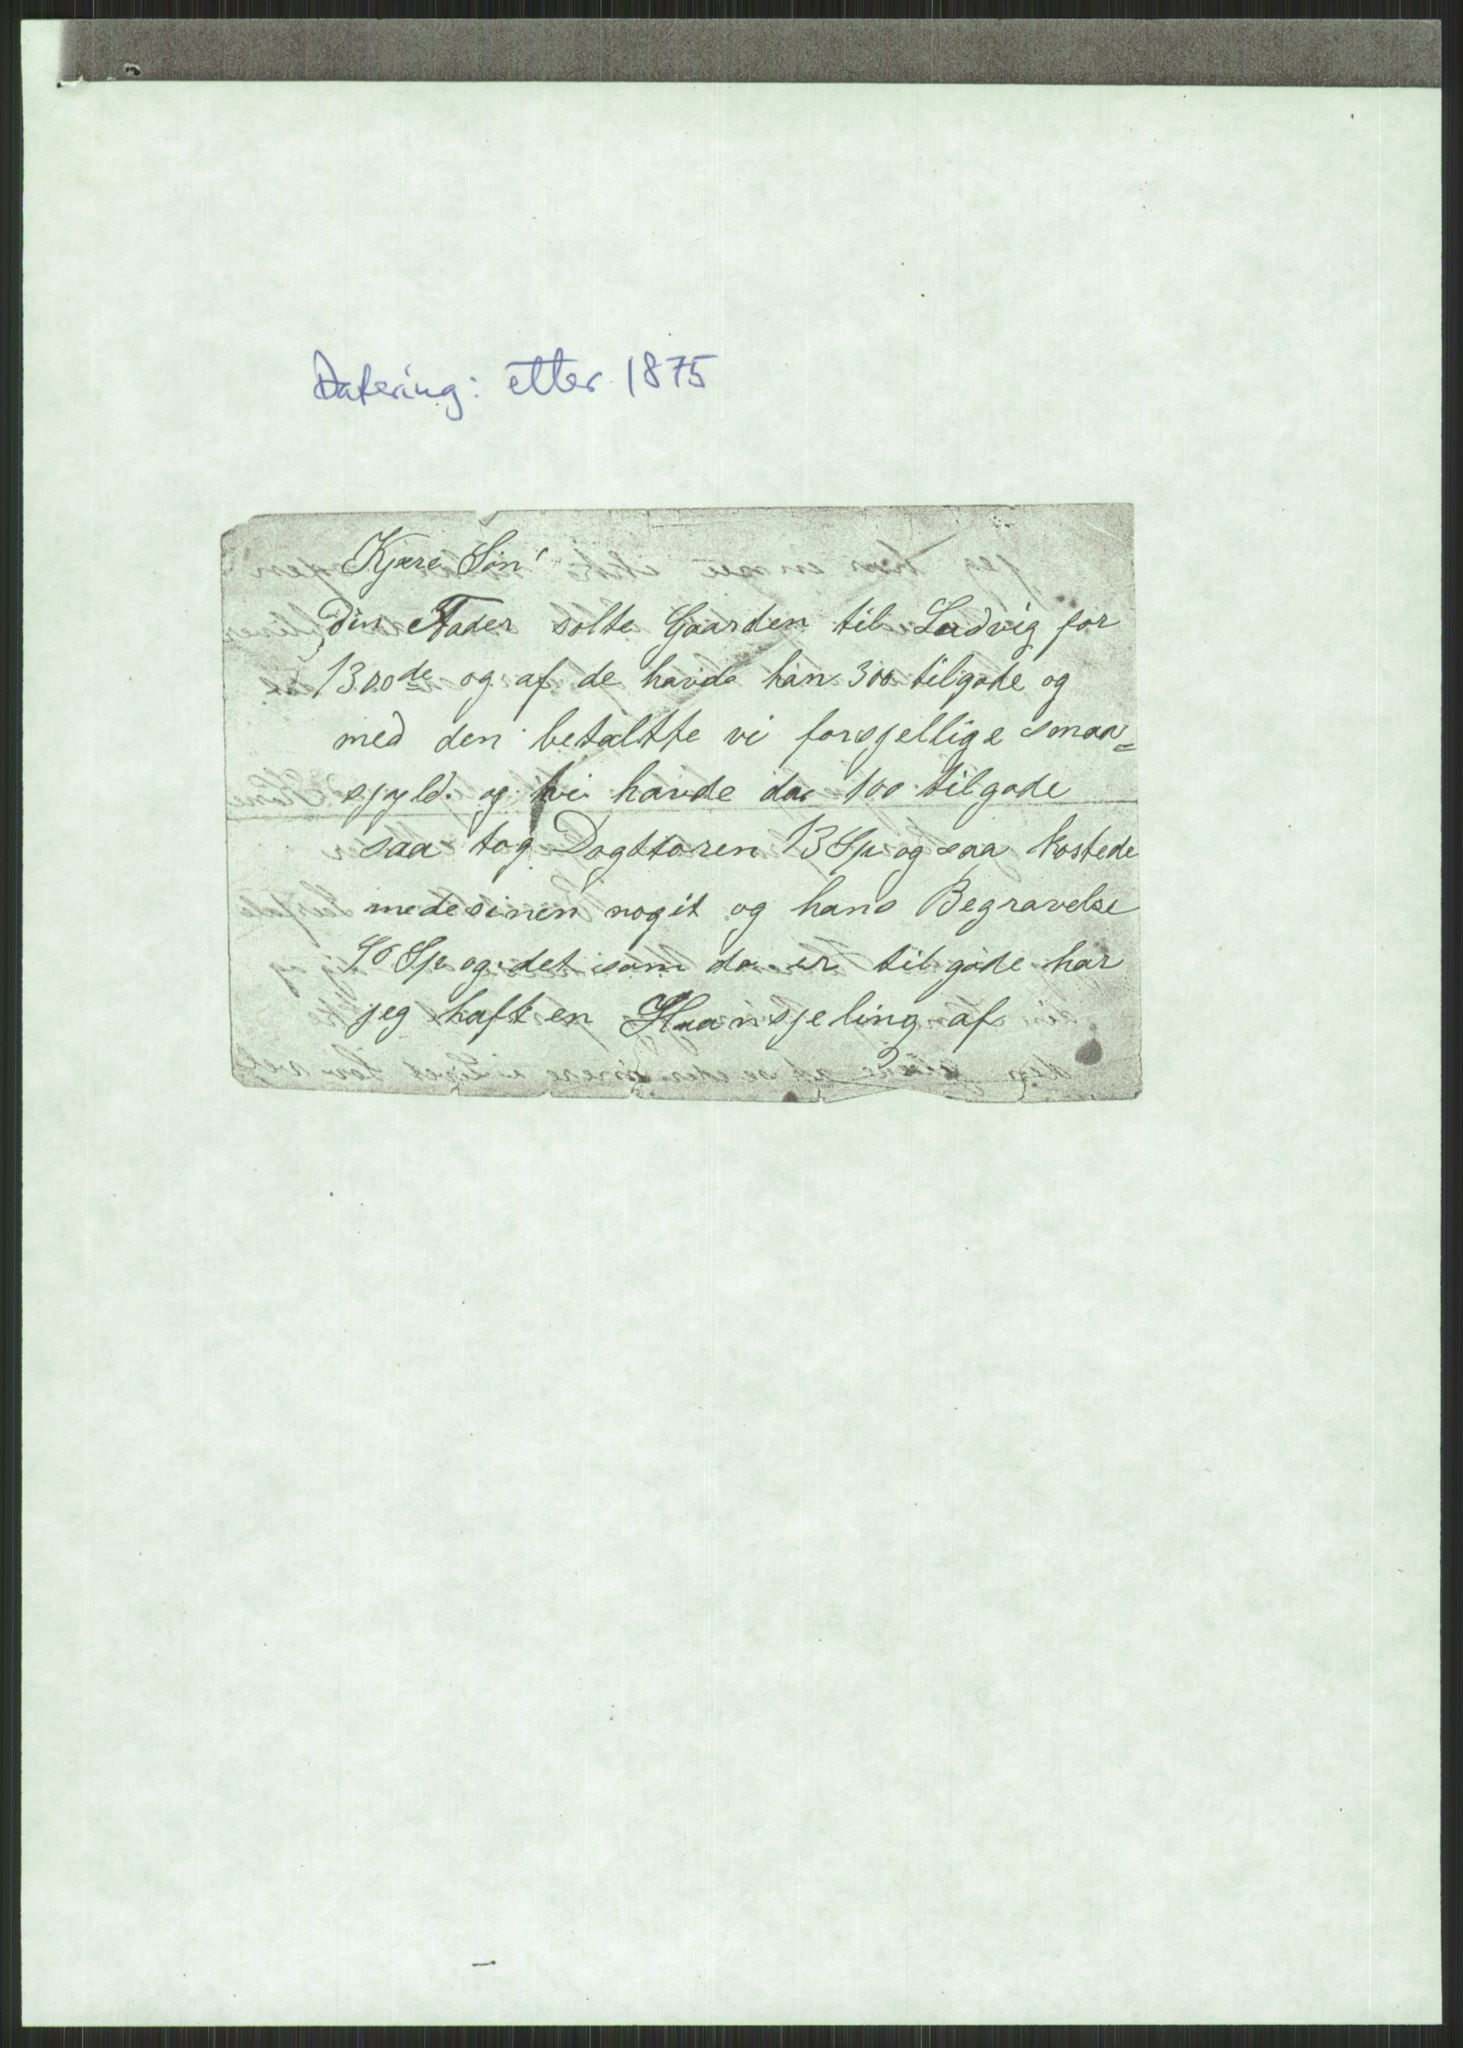 Datering: etter 1875
Kjære Søn!
Din Fader solte Gaarden til Ludvig for
1300de og af de havde han 300 tilgode og
med den betaltte vi forsjellige smaa=
sjyld og vi havde da 100 tilgode
saa tog Dogttoren 13 Sp og saa kostede
medesinen nogit og hans Begravelse
Sp og det som da er tilgode har
jeg haft en Haansjeling af